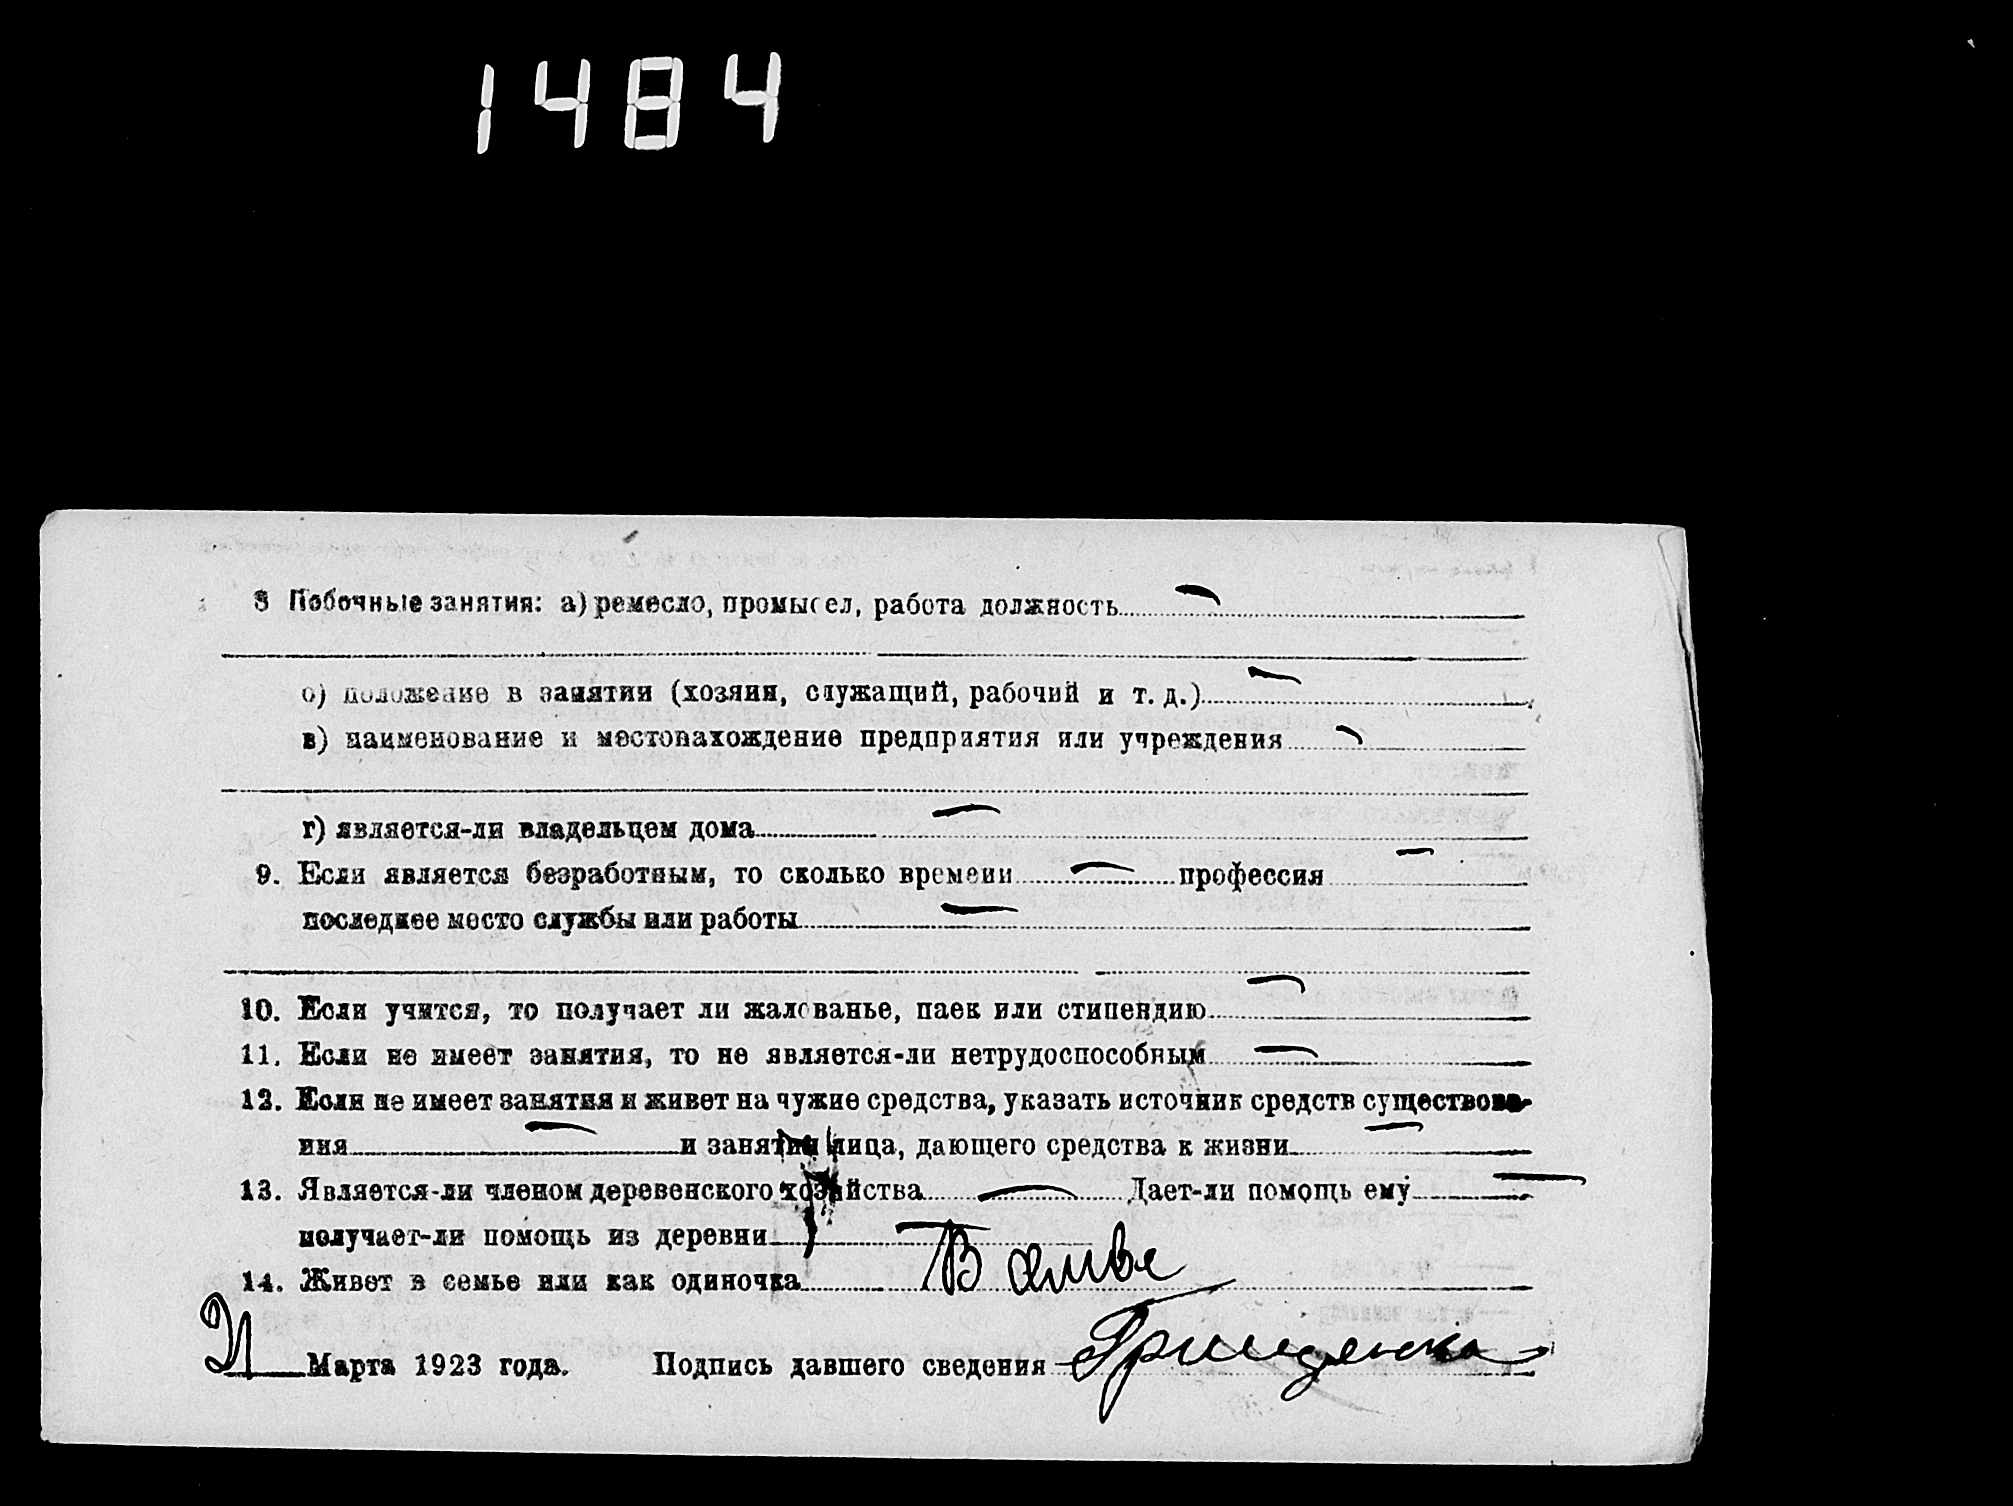 1484
8 Побочные занятия: а) ремесло, промысел, работа должность
б) положение в занятии (хозяин, служащий, рабочий и т. д.)
в) наименование и местонахождение предприятия или учреждения
г) является-ли владельцем дома
9. Если является безработным, то сколько времени профессия
последнее место службы или работы
10. Если учится, то получает ли жалованье, паек или стипендию
11. Если не имеет занятия, то не является-ли нетрудоспособным
12. Если не имеет занятия и живет на чужие средства, указать источник средств существова-
ния и занятия лица, дающего средства к жизни
13. Является-ли членом деревенского хозяйства Дает-ли помощь ему
получает-ли помощь из деревни
14. Живет в семье или как одиночка В
21 Марта 1923 года. Подпись давшего сведения